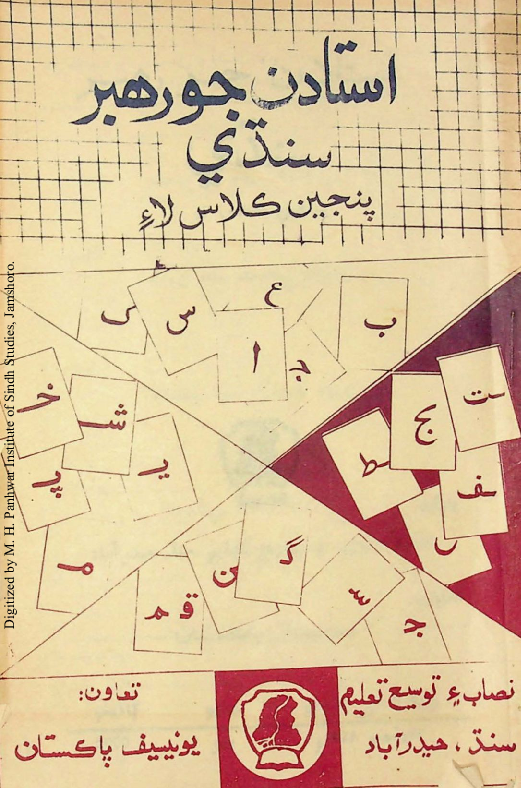 استادن جو رهبر
سنڌي
پنجين ڪلاس لاءِ
ع
س
ب
ا
خا
شا
پ
ج
ط
ف
م
ن
گ
ق م
نصاب ۽ توسيع تعليم
سنڌ، حيدرآباد
تعاون:
يونيسيف پاڪستان
Digitized by M. H. Panhwar Institute of Sindh Studies, Jamshoro.